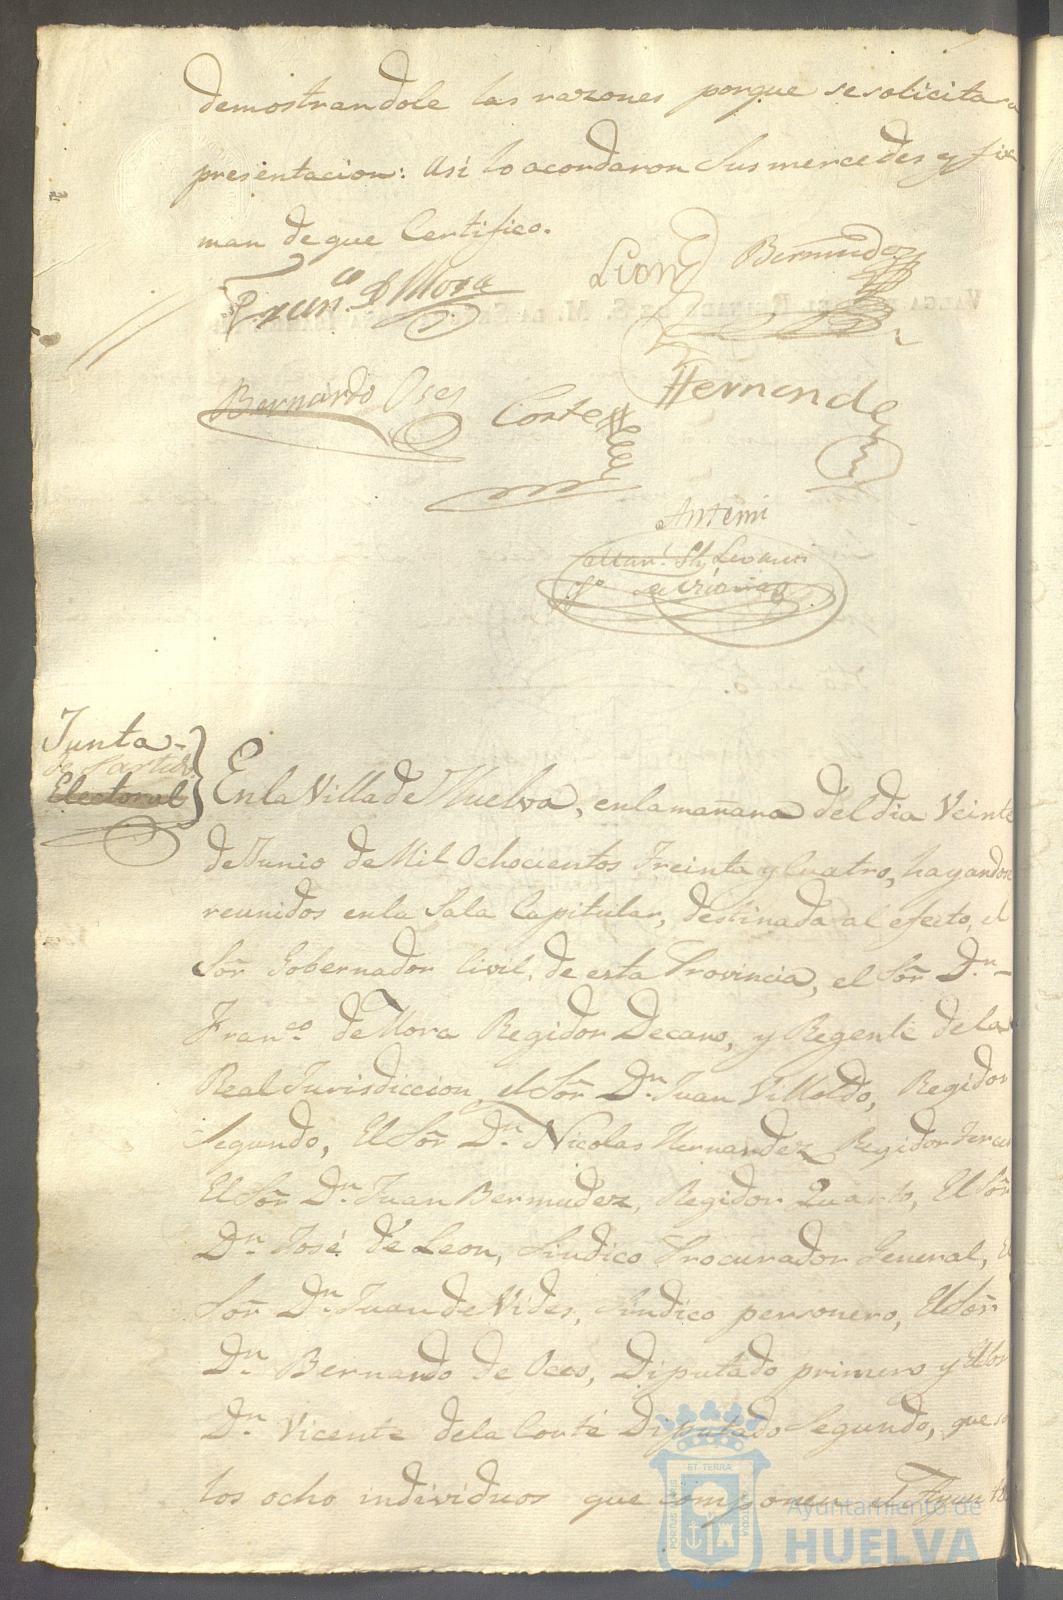 demostrandole las razones porque se solicita su
presentacion: Asi lo acordaron Sus mercedes y fir
man de que Certifico.
Leon Bermudez
Fran.co d Mora
Hernandez
Bernardo Oses Cortes
Antemi
Junta
de Partido
Electoral
En la Villa de Huelva, en la mañana del dia Veinte
de Junio de Mil Ochocientos Treinta y Cuatro, hayandose
reunidos en la Sala Capitular, destinada al efecto, el
Sor̃ Gobernador Civil, de esta Provincia, el Sor̃ D.n
Fran.co de Mora Regidor Decano, y Regente de la
Real Jurisdiccion, el Sor̃ D.n Juan Villoldo, Regidor
Segundo, El Sor̃ D.n Nicolas Hernandez Regidor Tercer
El Sor̃ D.n Juan Bermudez, Regidor Quarto, El Sor̃
D.n José de Leon, Sindico Procurador General, El
Sor̃ D.n Juan de Vides, Sindico personero, El Sor̃
D.n Bernardo de Oces, Diputado primero y El Sor
D.n Vicente de la Corte Diputado Segundo, que son
los ocho individuos que componen el Ayunta
VALGA PARA EL REINADO DE S. M. LA SEÑORA DOÑA ISABEL
PORTUS MARIS ET TERRÆ CUSTODIA
Ayuntamiento de
HUELVA